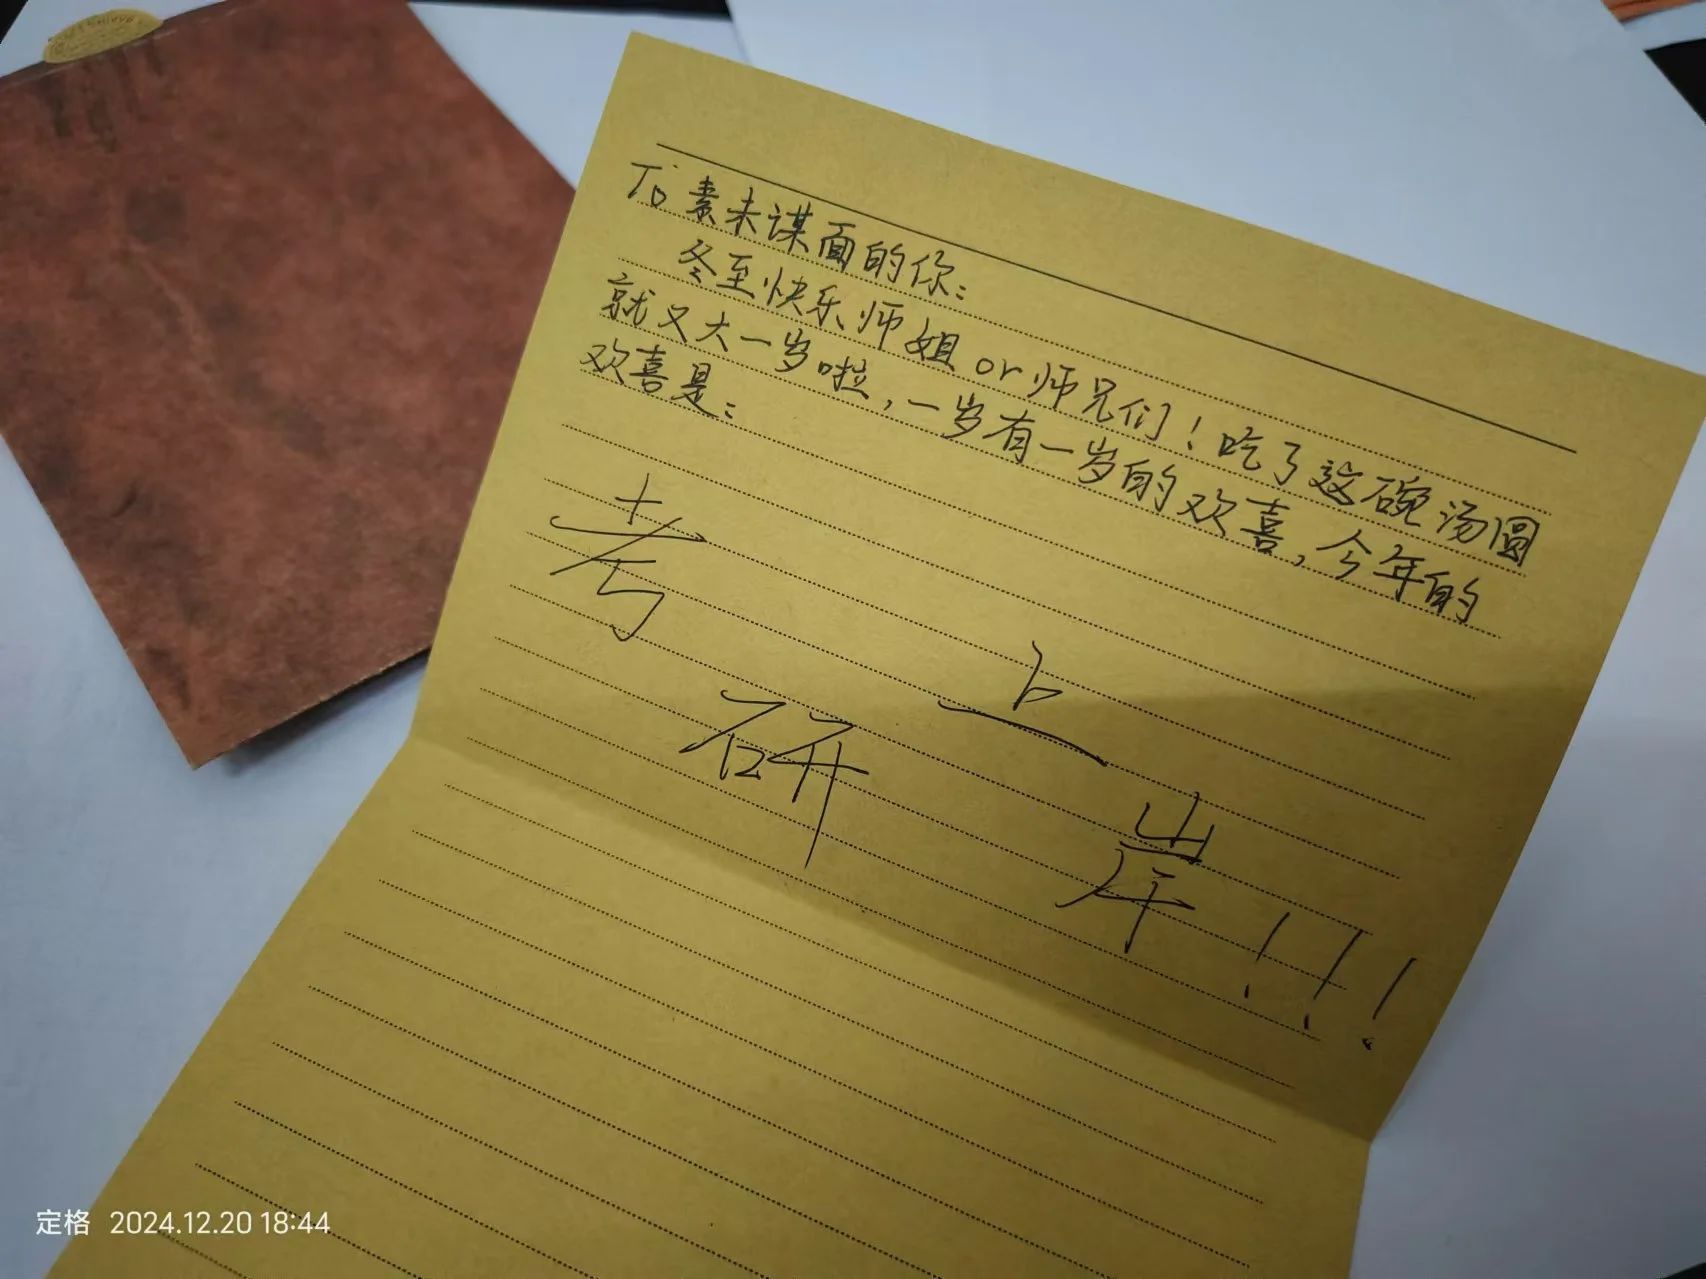 To 素未谋面的你：
冬至快乐师姐or师兄们！吃了这碗汤圆
就又大一岁啦，一岁有一岁的欢喜，今年的
欢喜是：
考研上岸！！！
定格 2024.12.20 18:44